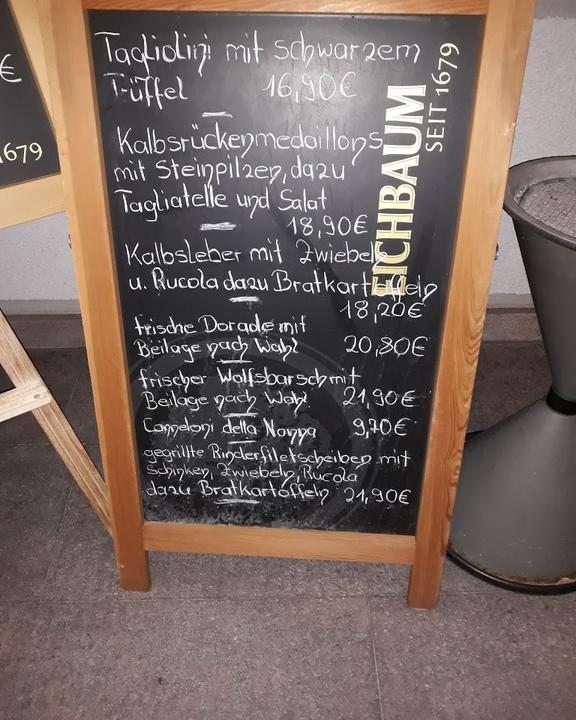 €
1679
Tagliolini mit schwarzem
Trüffel 16,90€
Kalbsrückenmedaillons
mit Steinpilzen, dazu
Tagliatelle und Salat
18,90€
Kalbsleber mit Zwiebeln
u. Rucola dazu Bratkartoffeln
18,20€
frische Dorade mit
Beilage nach Wahl 20,80€
frischer Wolfsbarsch mit
Beilage nach Wahl 21,90€
Canneloni della Nonna 9,70€
gegrillte Rinderfiletscheiben mit
Schinken, Zwiebeln, Rucola
dazu Bratkartoffeln 21,90€
EICHBAUM
SEIT 1679